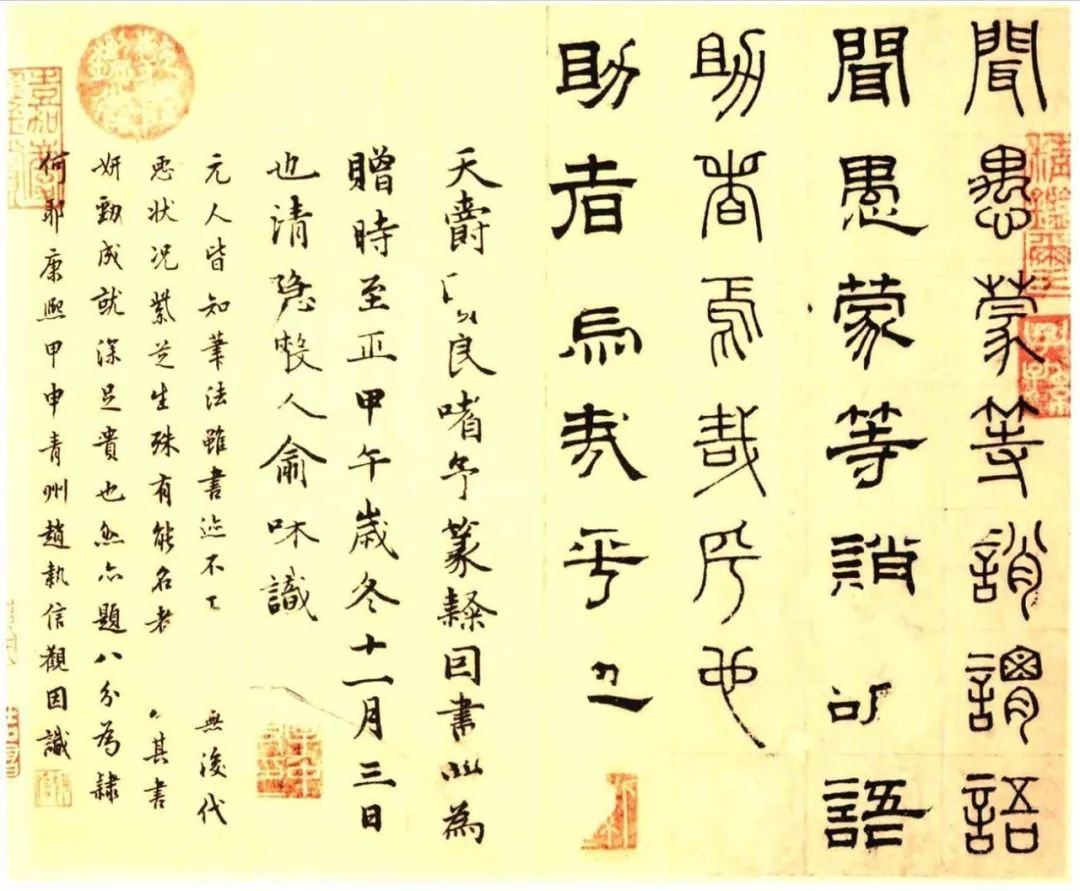 聞愚蒙等誚謂語
聞愚蒙等誚語
助者焉哉乎也
助者焉哉乎
天爵良嗜予篆隸因書此為
贈時至正甲午歲冬十一月三日
也清隐散人俞咊識
元人皆知筆法雖書迹不工無後代
惡状况紫芝生殊有能名者其書
妍勁成就深足貴也然亦題八分為隸
何耶康熙甲申青州趙執信觀因識